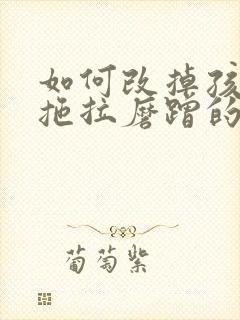 如何改掉孩
拖拉磨蹭的
葡萄紫